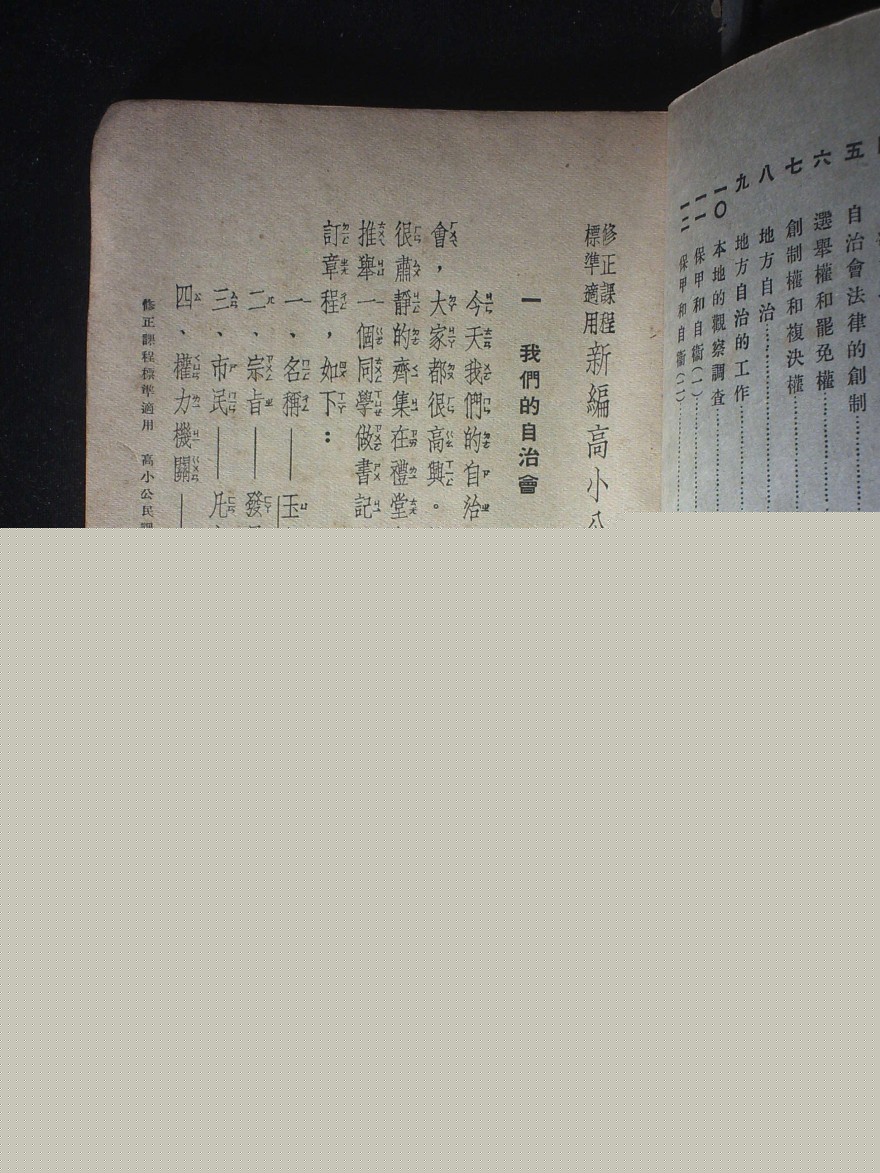 五 自治會法律的創制
六 選舉權和罷免權
七 創制權和複決權
八 地方自治
九 地方自治的工作
一〇 本地的觀察調查
一一 保甲和自衞(一)
一二 保甲和自衞(二)
修正課程標準適用 新編高小
一 我們的自治會
今天我們的自治
會，大家都很高興。
很肅靜的齊集在禮堂
推舉一個同學做書記
訂章程，如下：
一、名稱——玉
二、宗旨——發
三、市民——凡
四、權力機關——
修正課程標準適用 高小公民